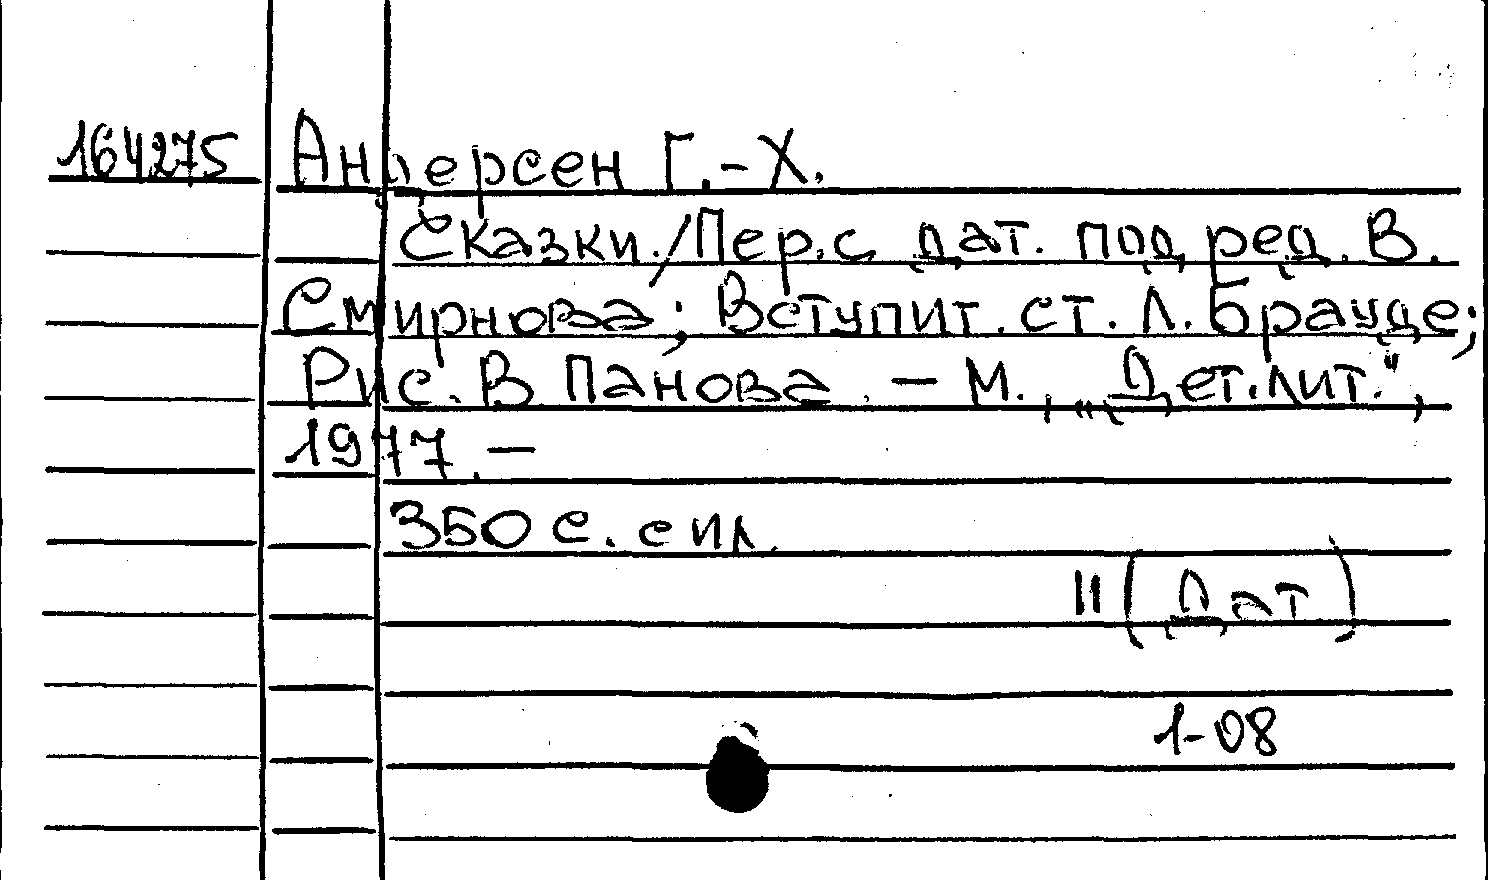 164275 Андерсен Г.-Х.
Сказки./Пер.с дат. под ред. В.
Смирнова; Вступит. ст. Л. Брауде;
Рис. В Панова. – М., „Дет.лит.",
1977. –
350 с. с ил.
II (Дат)
1-08